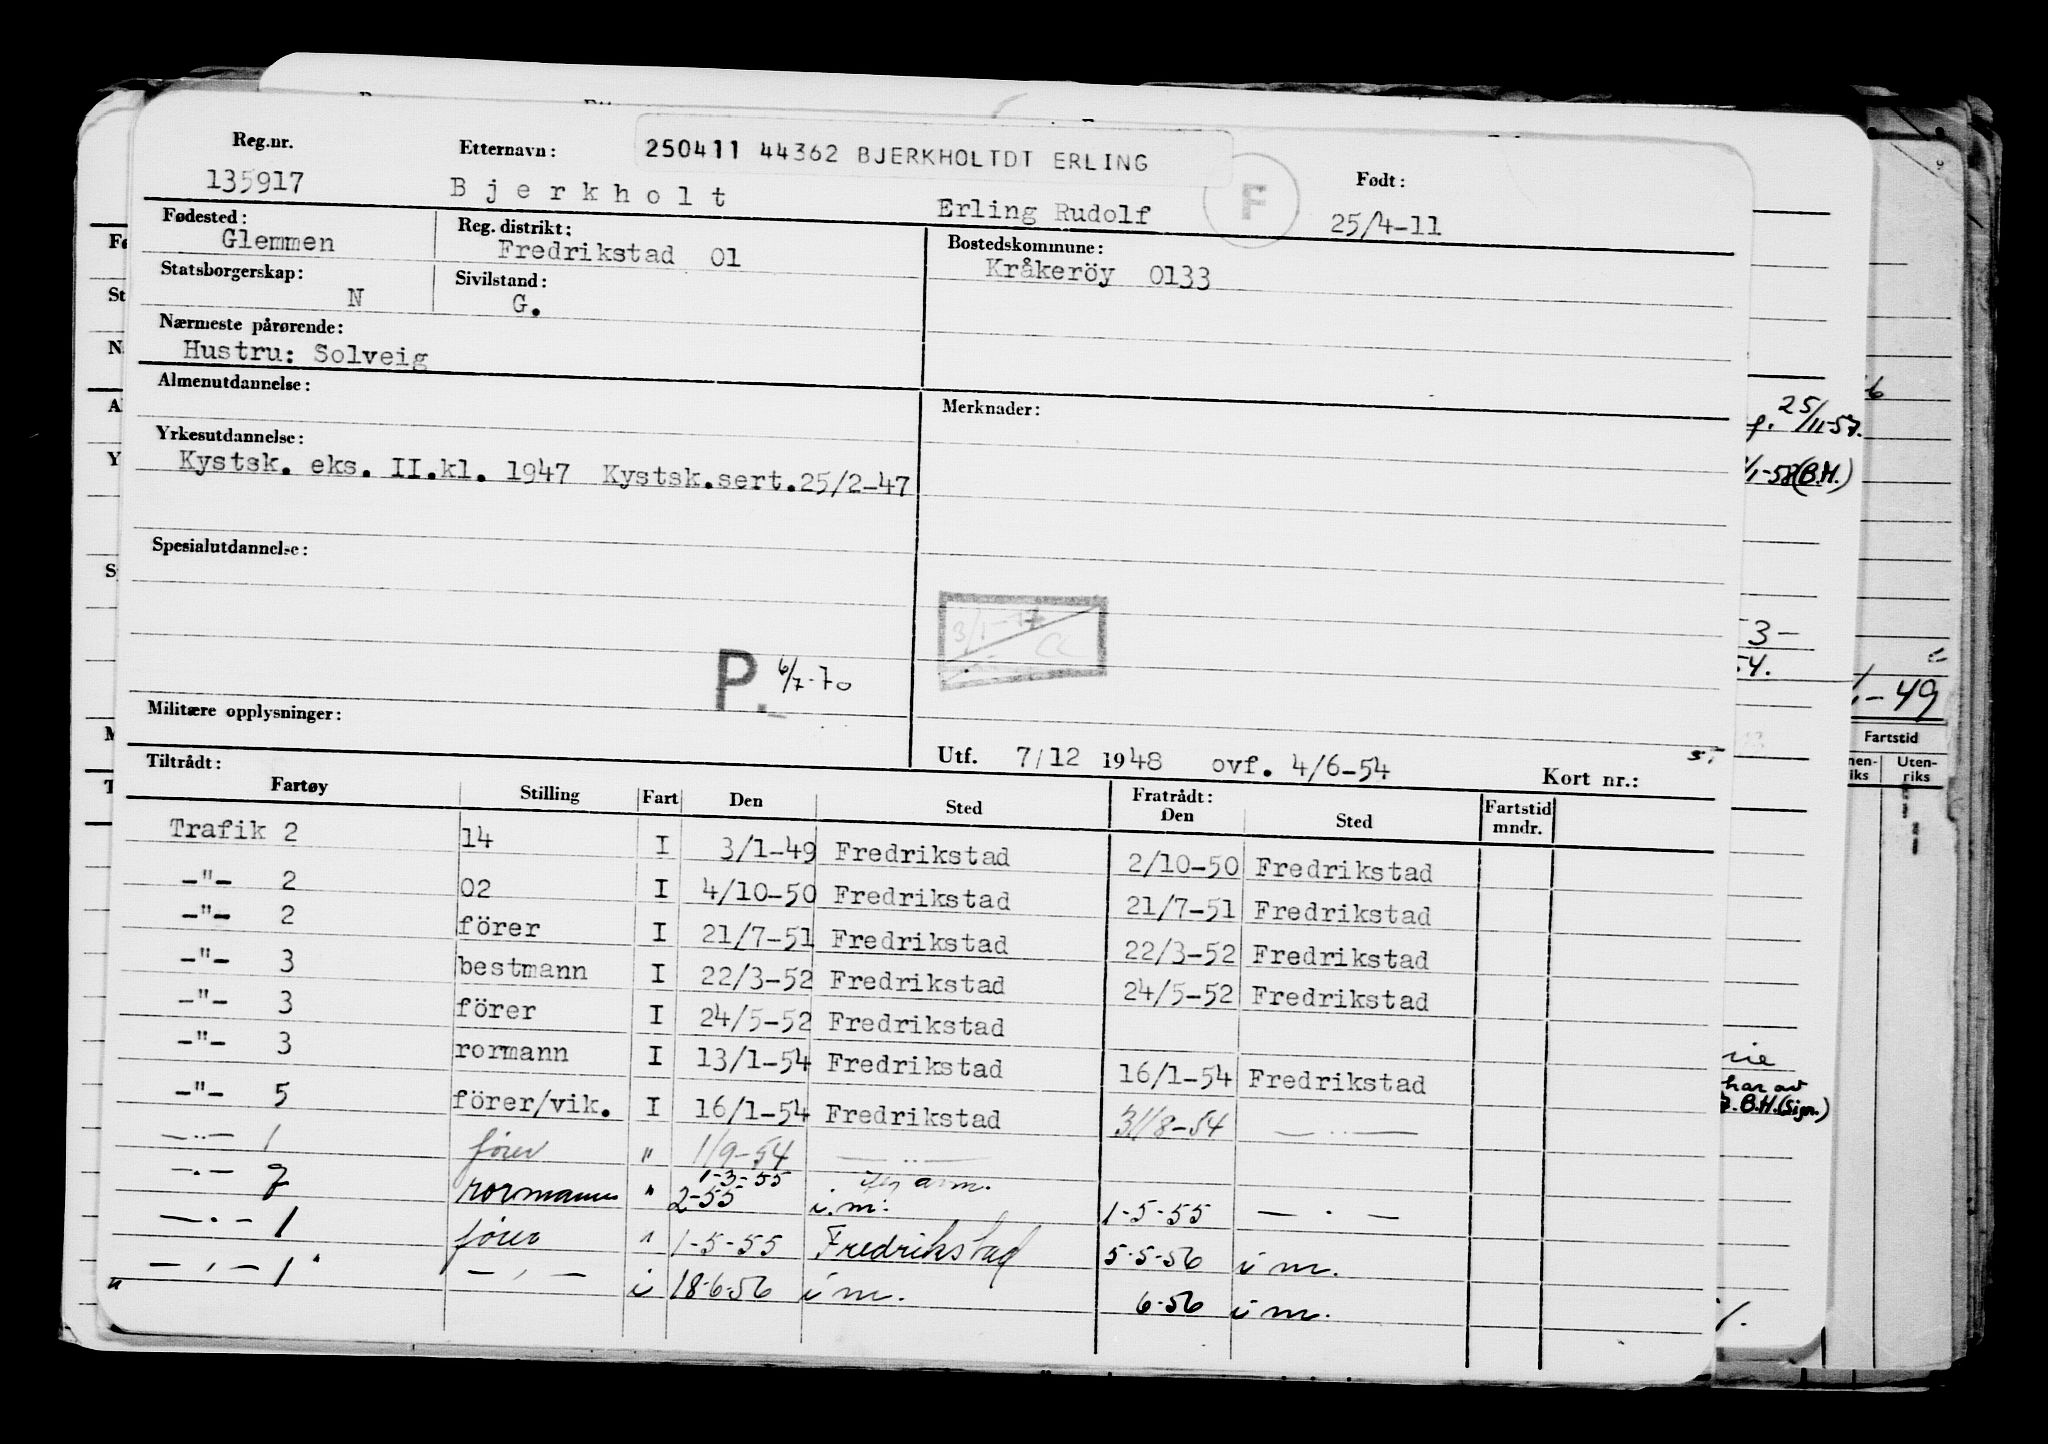 Reg.nr. Etternavn: 250411 44362 BJERKHOLTDT ERLING Født:
135917 Bjerkholt Erling Rudolf F 25/4-11
Fødested: Reg. distrikt: Bostedskommune:
Glemmen Fredrikstad 01 Kråkeröy 0133
Statsborgerskap: Sivilstand:
N G.
Nærmeste pårørende:
Hustru: Solveig
Almenutdannelse: Merknader:
Yrkesutdannelse:
Kystsk. eks. II.kl. 1947 Kystsk.sert.25/2-47
Spesialutdannelse:
P. 6/7-70
Militære opplysninger:
Utf. 7/12 1948 ovf. 4/6-54 Kort nr.:
Tiltrådt: Fratrådt:
Fartøy Stilling Fart Den Sted Den Sted Fartstid mndr.
Trafik 2 14 I 3/1-49 Fredrikstad 2/10-50 Fredrikstad
-"- 2 02 I 4/10-50 Fredrikstad 21/7-51 Fredrikstad
-"- 2 förer I 21/7-51 Fredrikstad 22/3-52 Fredrikstad
-"- 3 bestmann I 22/3-52 Fredrikstad 24/5-52 Fredrikstad
-"- 3 förer I 24/5-52 Fredrikstad
-"- 3 rormann I 13/1-54 Fredrikstad 16/1-54 Fredrikstad
-"- 5 förer/vik. I 16/1-54 Fredrikstad 31/8-54 -"-
-"- 1 fører " 1/9-54 -"-
1-3-55
-"- 7 rormann " 2-55 i.m. 1-5-55 -"-
-"- 1 fører " 1-5-55 Fredrikstad 5-5-56 i m.
" -"- 1 -"- i 18-6-56 i m. 6-56 i m.
25/11-57.
1-58 (B.H.)
3-
54.
-49
Fartstid
Uten-
riks
har av
B.H.(Sign.)